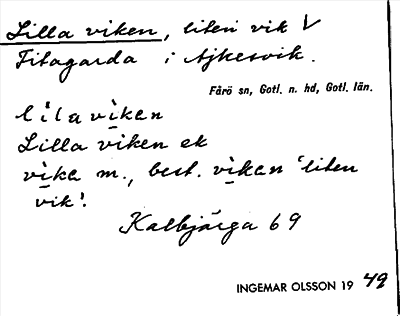 Lilla viken, liten vik V
Fitagarda i Ajkesvik.
Fårö sn, Gotl. n. hd, Gotl. län.
lila vikan
Lilla viken ek
vika m., best. vikan 'liten
vik'.
Kalbjärga 69
INGEMAR OLSSON 19 49